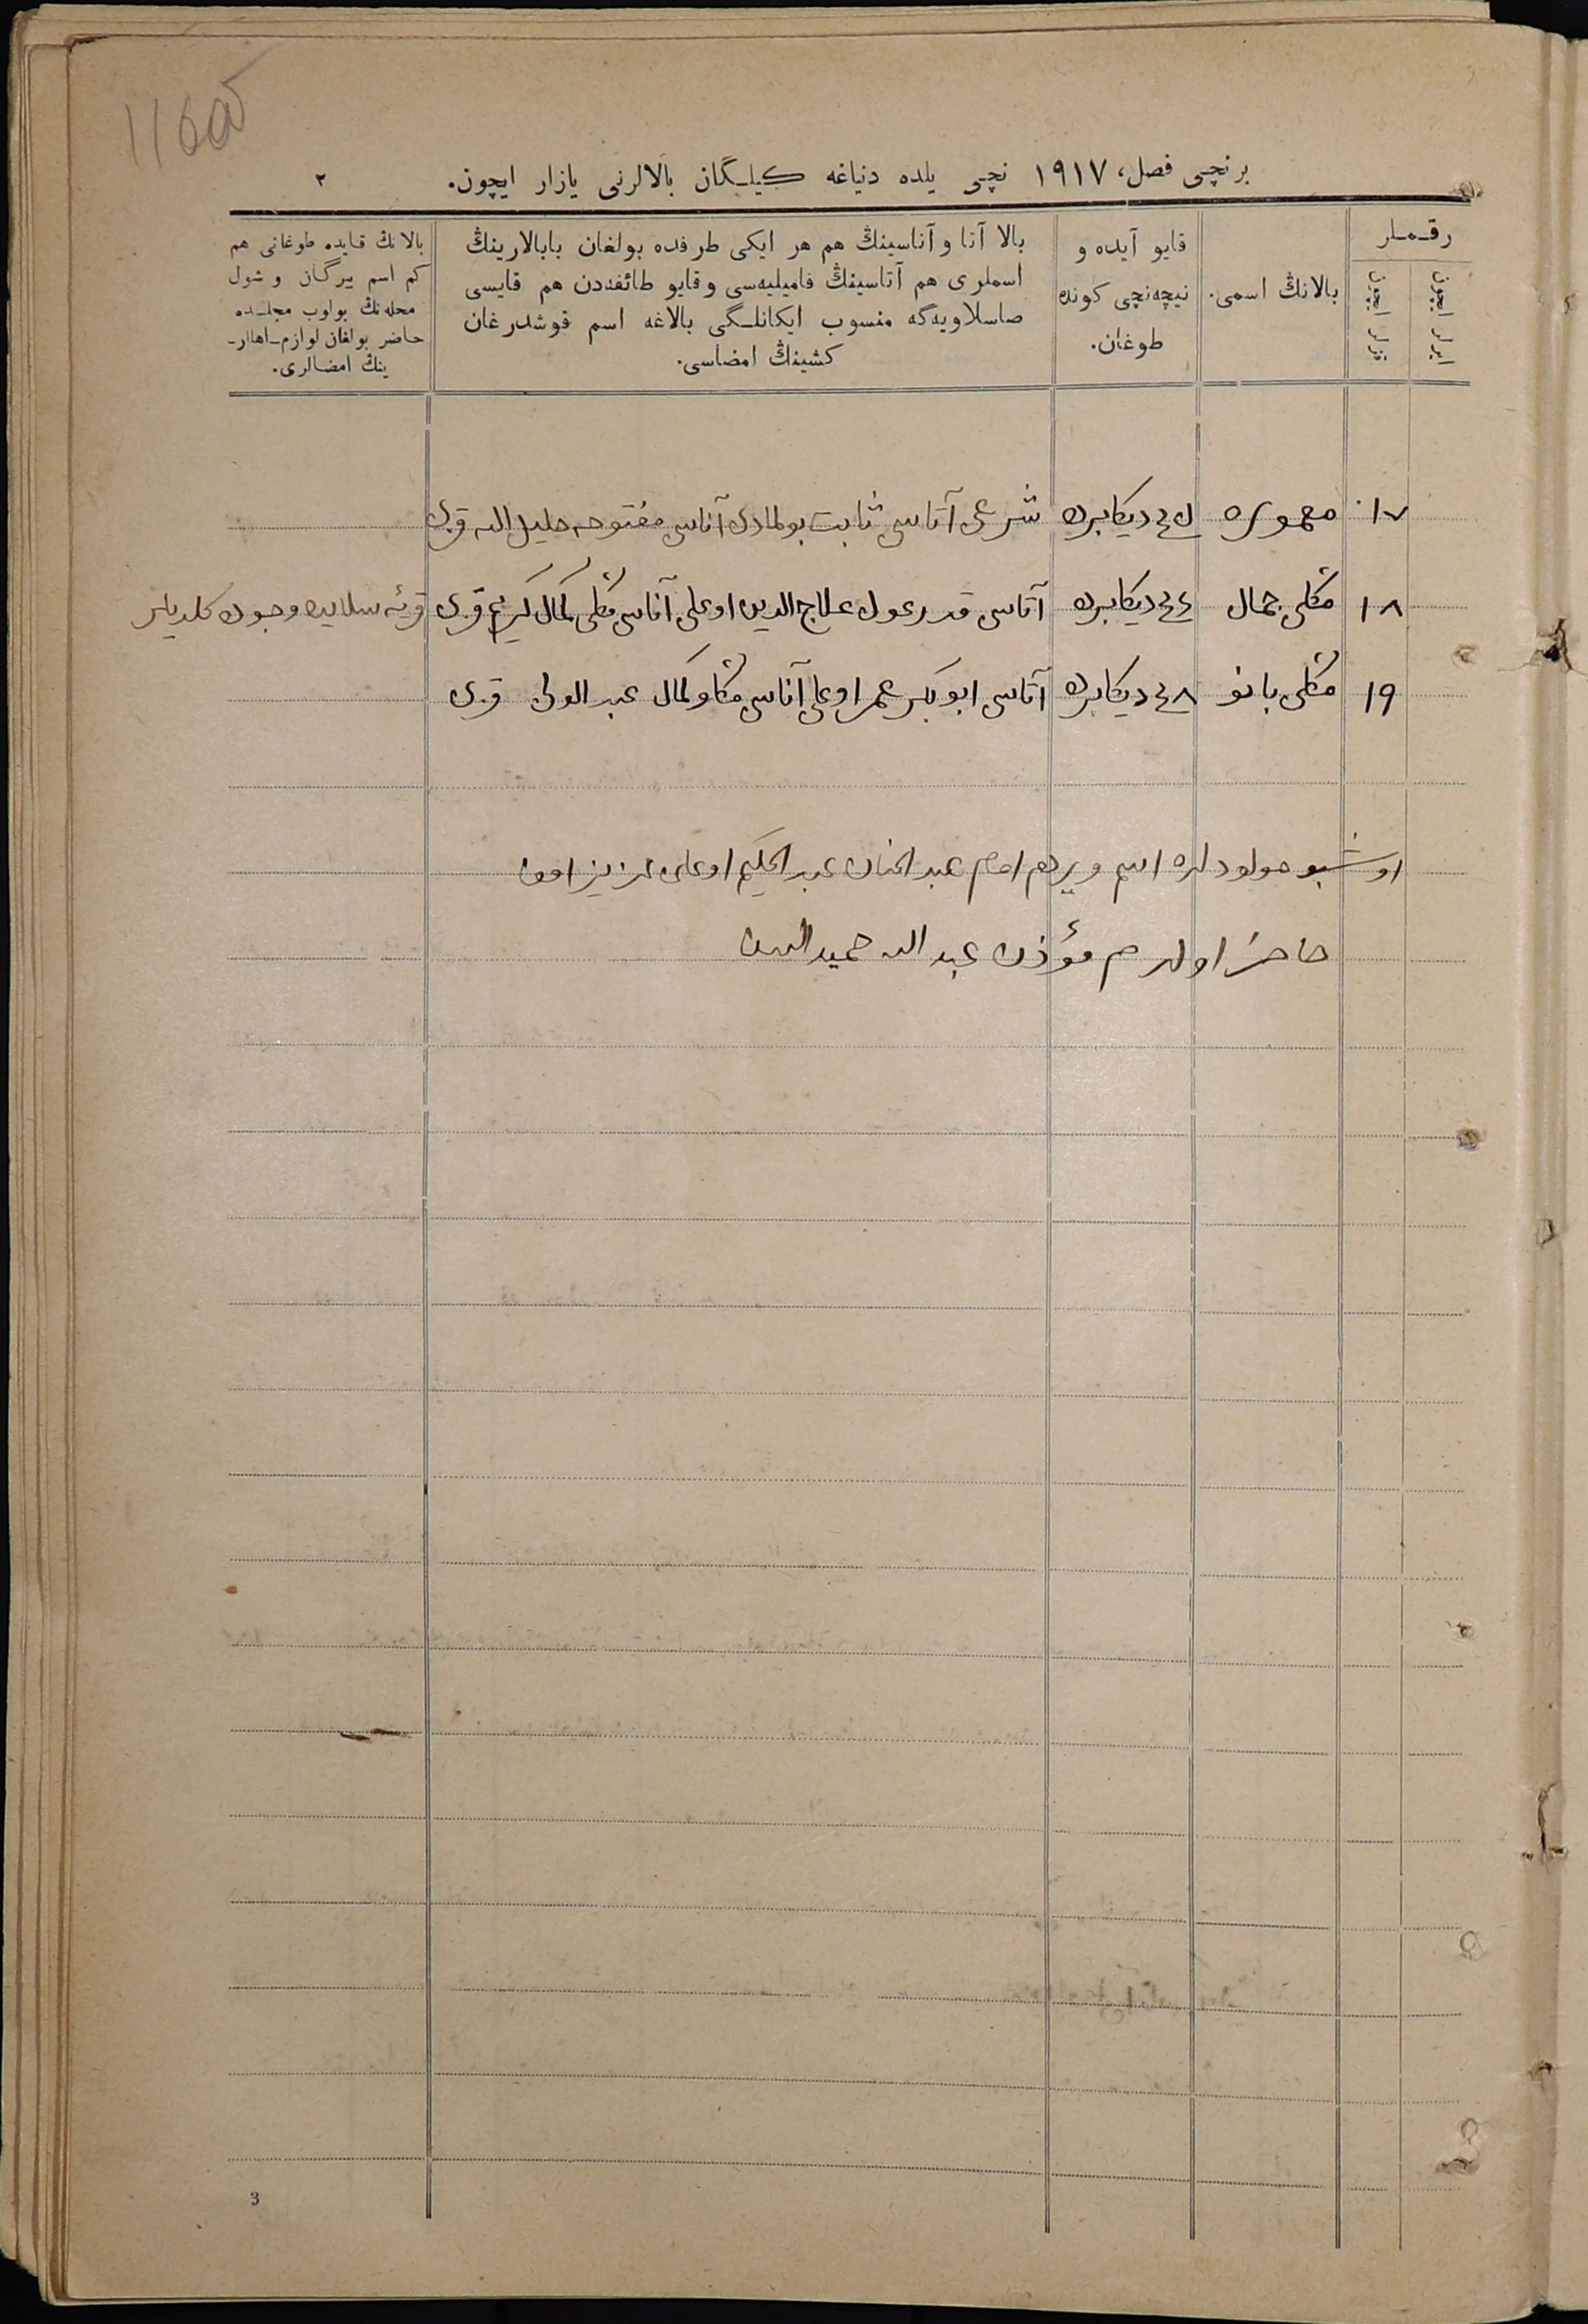 116об
برنچی فصل، ۱۹۱۷ نچی یلده دنیاغه کیلـگان بالالرنی یازار ایچون.
۲
رقـمـلر
ایرلر ایچون
قزلر ایچون
بالانڭ اسمی.
قایو آیده و
نیچه‌نچی کونده
طوغان.
بالا آتا و آناسینڭ هم هر ایکی طرفده بولغان بابالارینڭ
اسملری هم آتاسینڭ فامیلیه‌سی و قایو طائفه‌دن هم قایسی
صاسلاویه‌گه منسوب ایکانلـگی بالاغه اسم قوشدرغان
کشینڭ امضاسی.
بالانڭ قایده طوغانی هم
کم اسم بیرگان و شول
محله‌نڭ بولوب مجلـسده
حاضر بولغان لوازم‌ـاهللرـ
ینڭ امضالری.
۱۷ دیکابرده شرعی آتاسی ثابت بولمادی آناسی مفتوحه خلیل الله قزی
۱۸ مڭلی جمال ۲۴ دیکابرده آتاسی علاج الدین اوغلی آناسی مڭلی کمال کریم قزی قریه کلدیلر
۱۹ مڭلی بانو ۲۸ دیکابرده آتاسی ابو بکر عمر اوغلی آناسی کمال عبد الولی قزی
اوشبو مولودلره اسم ویردم امام عبد الحنان عبد الحکیم اوغلی عزیزاوف
حاضر اولدم مؤذن عبد الله حمید الدین
3